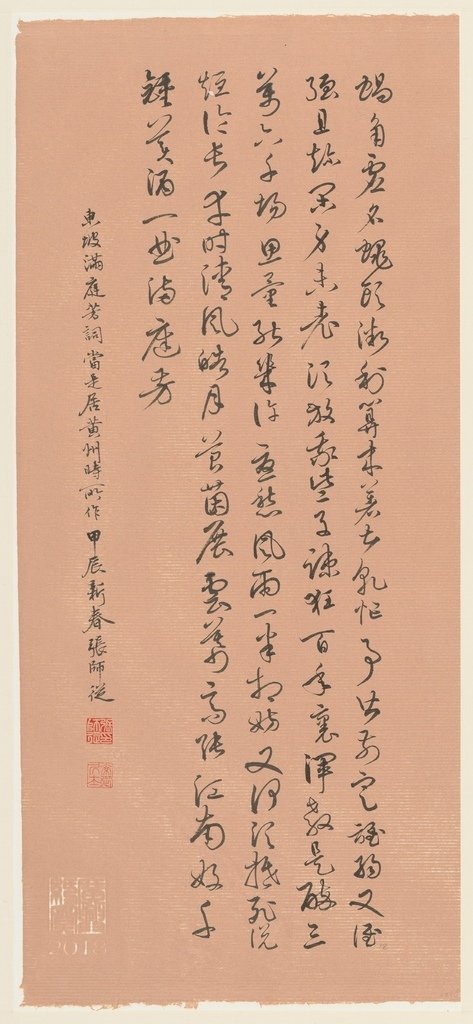 蝸角虛名蠅頭微利算來著甚乾忙事皆前定誰弱又誰
強且趁閒身未老須放我些子疎狂百年裏渾教是醉三
萬六千場思量能幾許憂愁風雨一半相妨又何須抵死說
短論長幸對清風皓月苔茵展雲幕高張江南好千
鍾美酒一曲滿庭芳
東坡滿庭芳詞當是居黃州時所作甲辰新春張師從